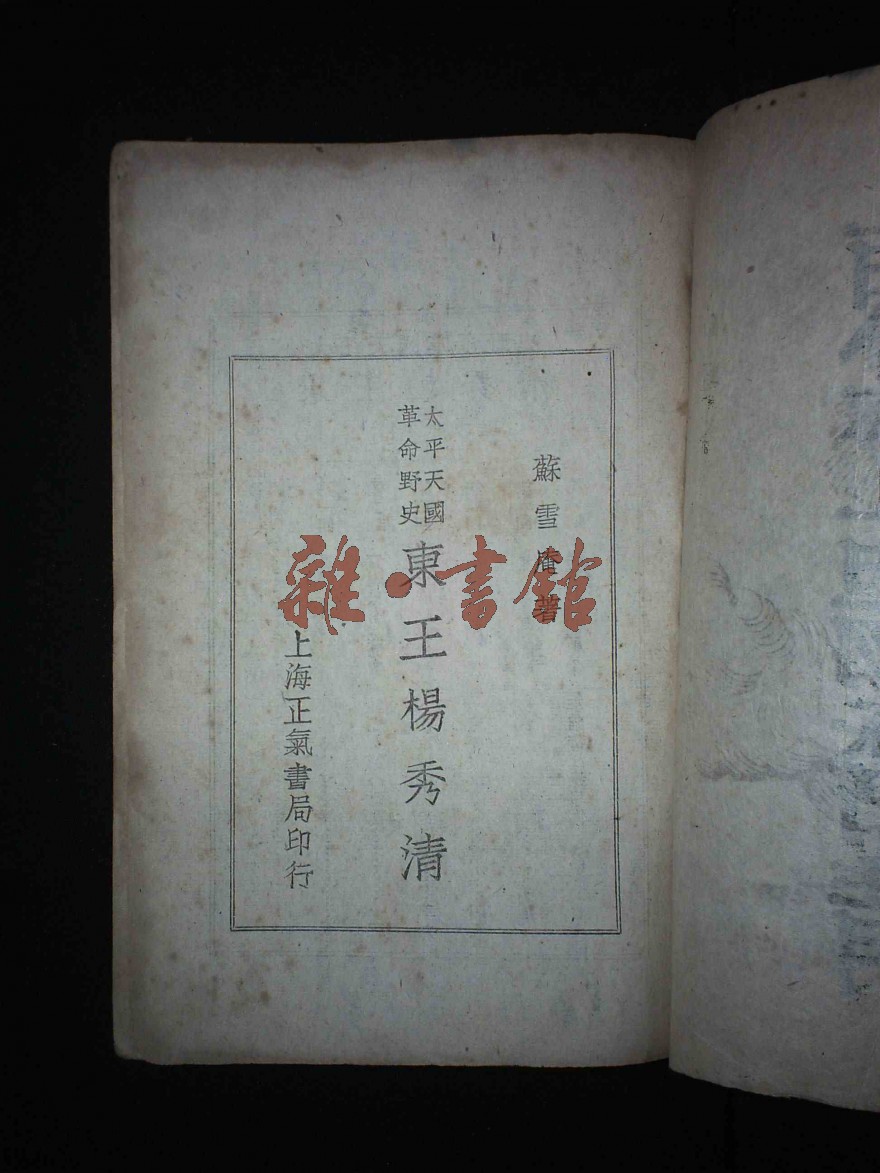 蘇雪庵著
太平天國
革命野史
東王楊秀清
上海正氣書局印行
雜·書館